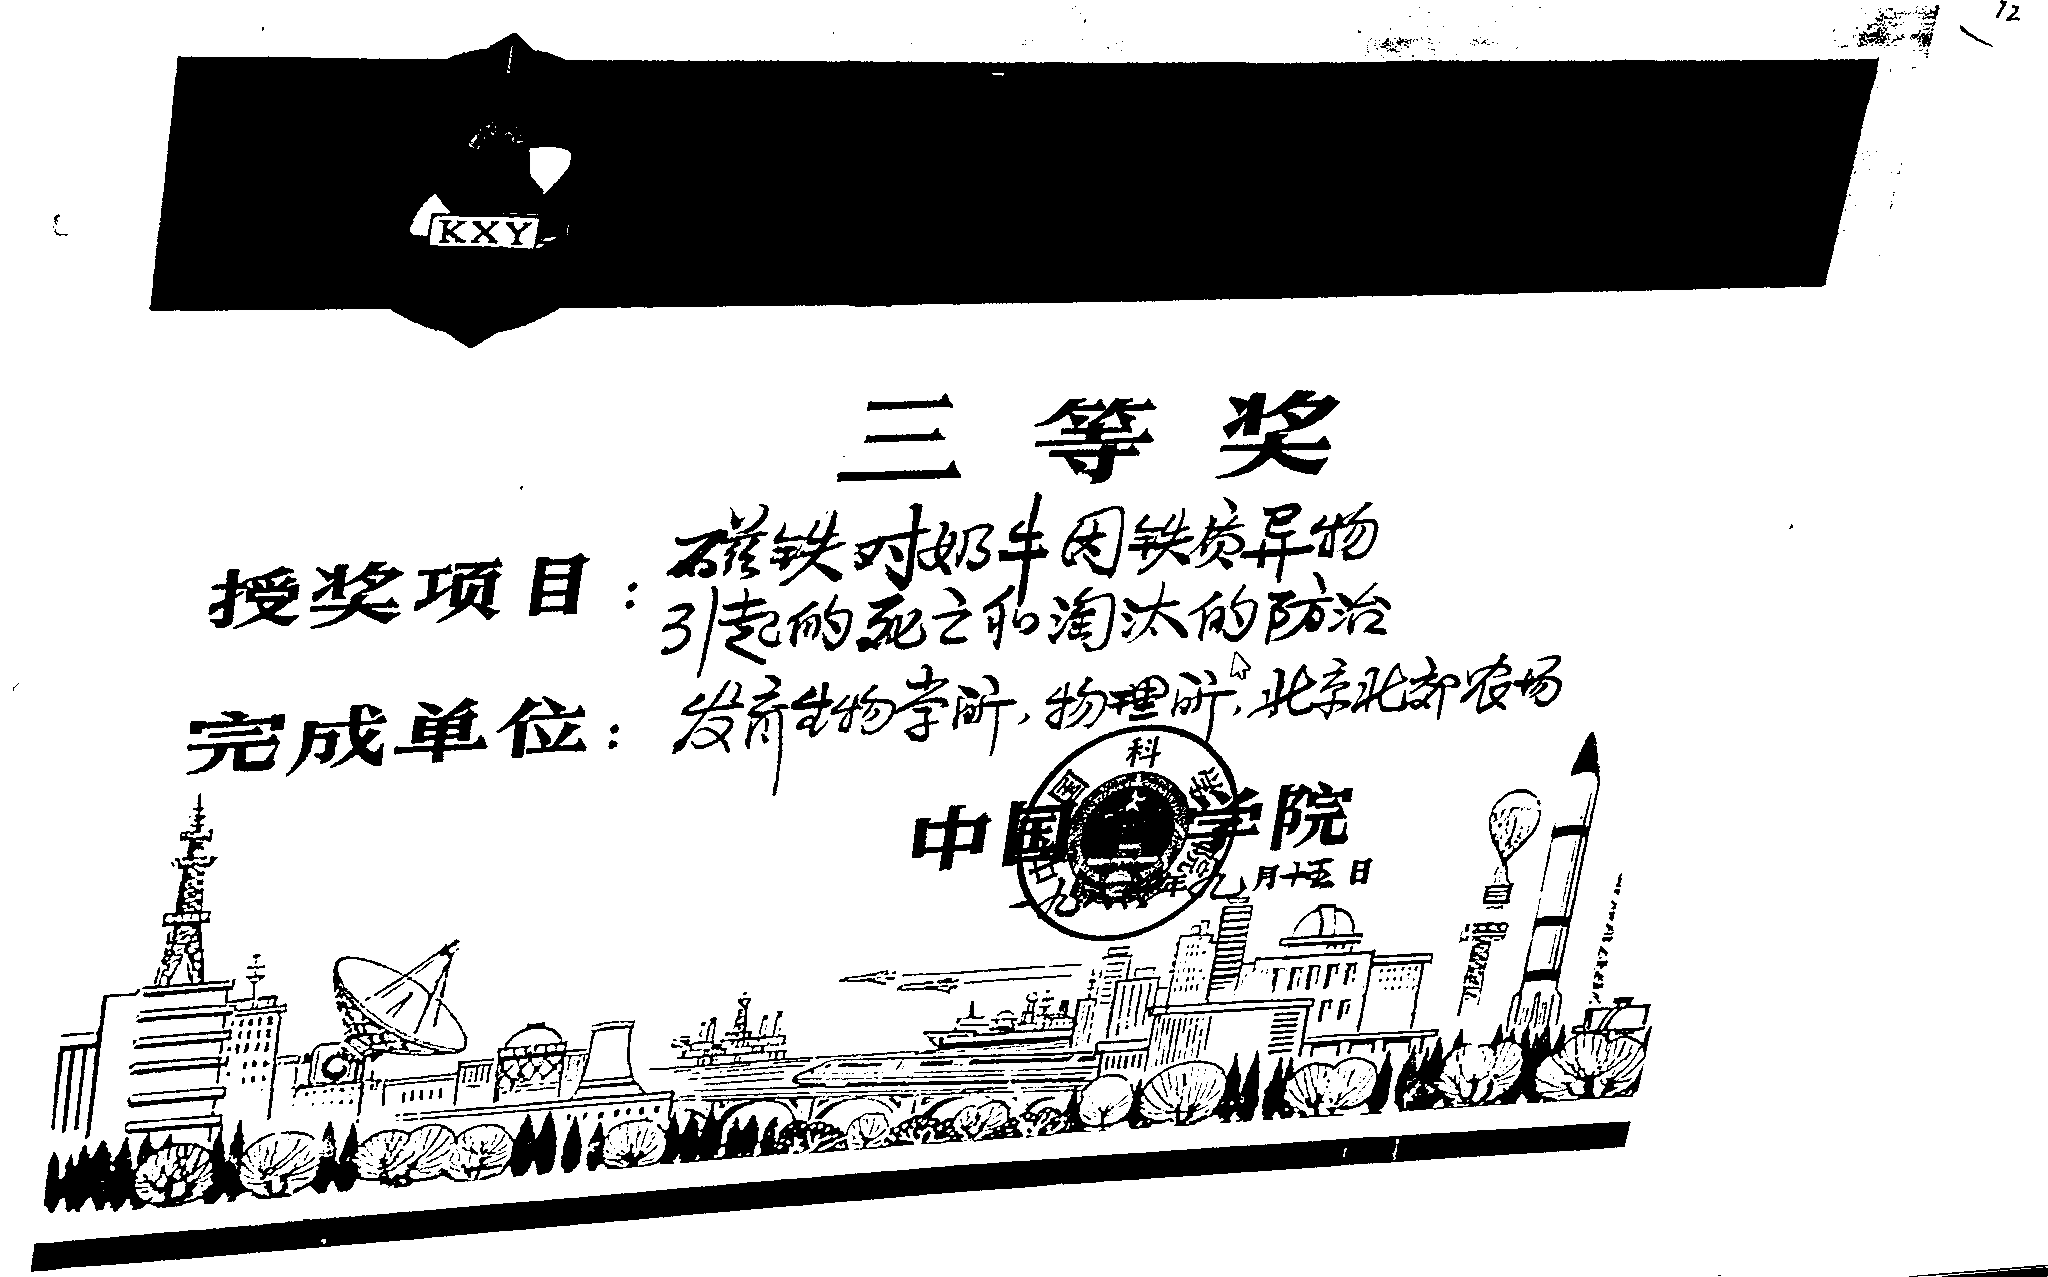 12
KXY
三等奖
授奖项目：磁铁对奶牛因铁质异物
引起的死亡和淘汰的防治
完成单位：发育生物学所，物理所，北京北郊农场
中国科学院
月十五日